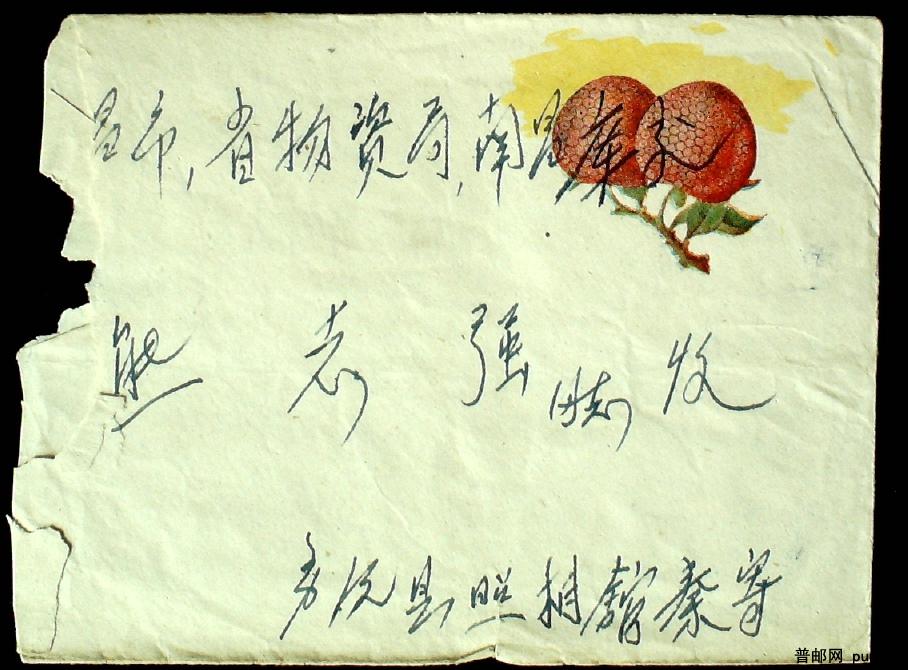 昌市,省物资局,南昌库交
熊志强同志收
县照相馆秦寄
普邮网 pu